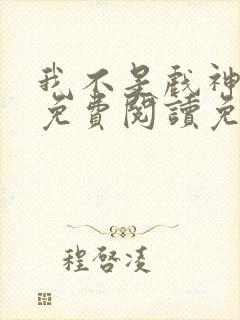 我不是戲神
免費閱讀免
程啓凌